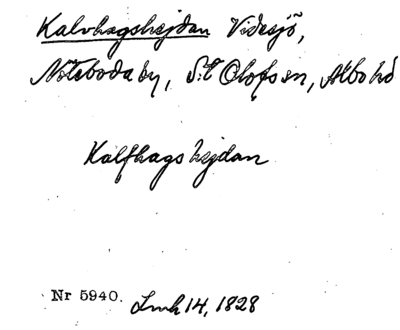 Kalvhagshejdan Videsjö,
Nöteboda by, S:t Olofs sn, Albo hd
Kalfhags hejdan
Nr 5940. Lmh 14, 1828